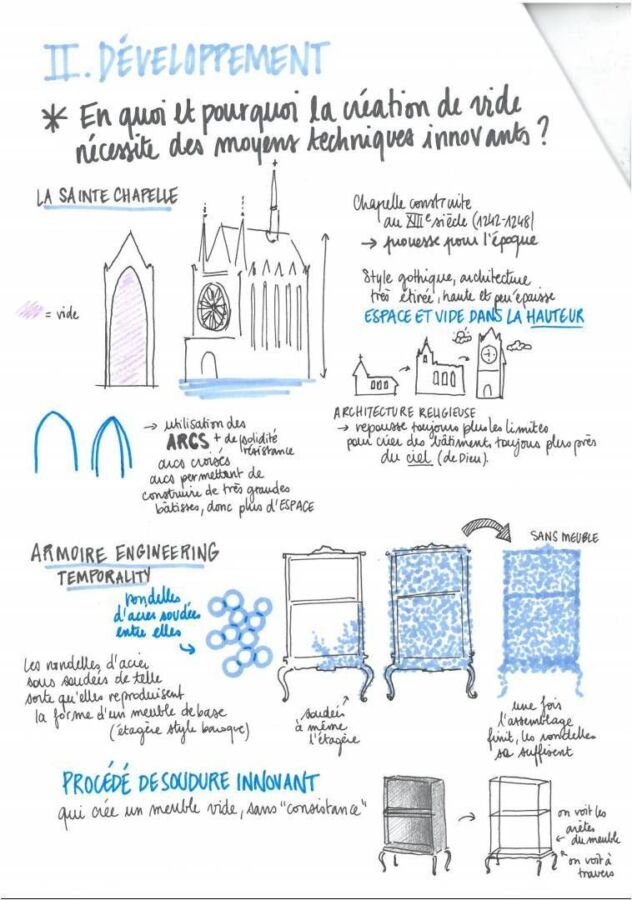 II. DÉVELOPPEMENT
* En quoi et pourquoi la création de vide
nécessite des moyens techniques innovants ?
LA SAINTE CHAPELLE
= vide
Chapelle construite
au XIIIe siècle (1242-1248)
→ prouesse pour l'époque
Style gothique, architecture
très étirée, haute et peu épaisse
ESPACE ET VIDE DANS LA HAUTEUR
ARCHITECTURE RELIGIEUSE
→ repousse toujours plus les limites
pour créer des bâtiment, toujours plus près
du ciel (de Dieu).
→ utilisation des
ARCS + de solidité
résistance
arcs croisés
arcs permettant de
construire de très grandes
bâtisses, donc plus d'ESPACE
ARMOIRE ENGINEERING
TEMPORALITY
SANS MEUBLE
rondelles
d'acier soudées
entre elles
Les rondelles d'acier
sous soudées de telle
sorte qu'elles reproduisent
la forme d'un meuble de base
(étagère style baroque)
soudées
à même
l'étagère
une fois
l'assemblage
finit, les rondelles
se suffisent
PROCÉDÉ DE SOUDURE INNOVANT
qui crée un meuble vide, sans "consistance"
on voit les
arêtes
du meuble
on voit à
travers